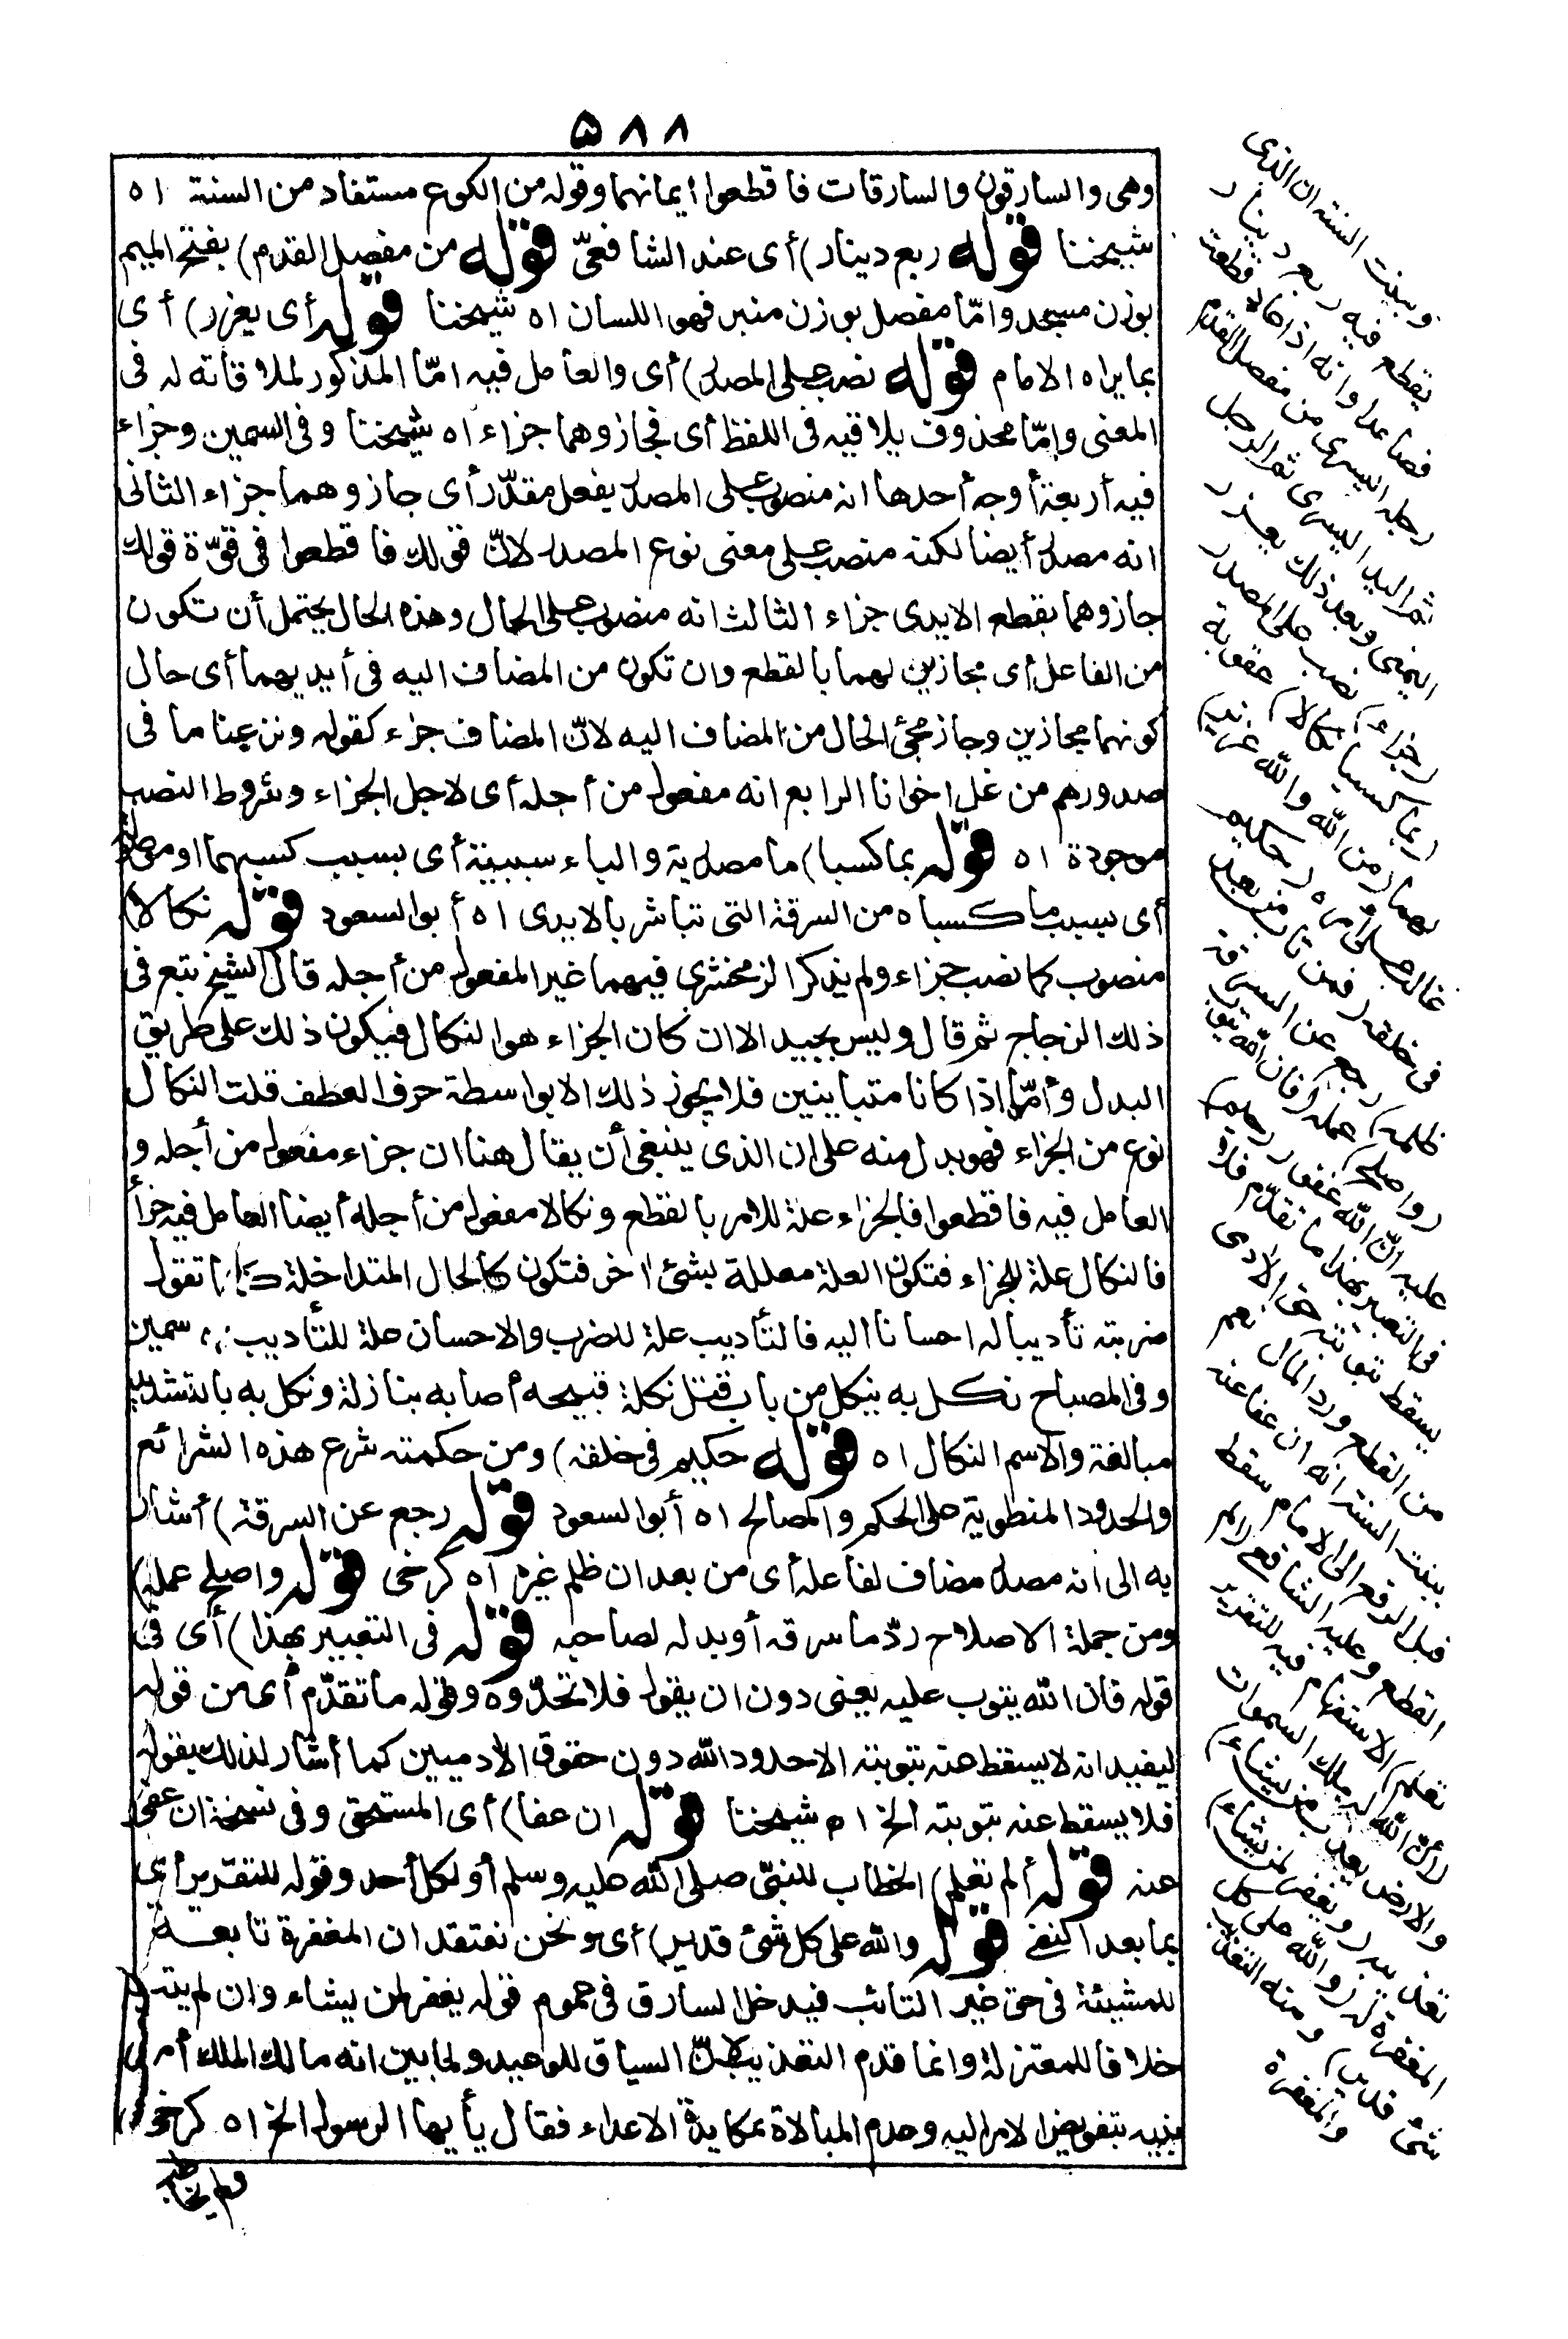 ٥٨٨
وهى والسارقون والسارقات فاقطعوا أيمانهما وقوله من الكوع مستفاد من السنة اه
شيخنا قوله ربع دينار) أى عند الشافعىّ قوله من مفصل القدم) بفتح الميم
بوزن مسجد وامّا مفصل بوزن منبر فهو اللسان اه شيخنا قوله أى يعزر) أى
بما يراه الامام قوله نصب على المصدر) أى والعامل فيه امّا المذكور لملاقاته له فى
المعنى وامّا محذوف يلاقيه فى اللفظ أى فجازوهما جزاء اه شيخنا وفى السمين وجزاء
فيه أربعة أوجه أحدها انه منصوب على المصدر بفعل مقدّر أى جازوهما جزاء الثانى
انه مصدر أيضا لكنه منصب على معنى نوع المصدر لانّ قولك فاقطعوا فى قوّة قولك
جازوهما بقطع الايدى جزاء الثالث انه منصوب على الحال وهذه الحال يحتمل أن تكون
من الفاعل أى مجازين لهما بالقطع وان تكون من المضاف اليه فى أيديهما أى حال
كونهما مجازين وجاز مجئ الحال من المضاف اليه لانّ المضاف جزء كقوله ونزعنا ما فى
صدورهم من غل اخوانا الرابع انه مفعول من أجله أى لاجل الجزاء وشروط النصب
موجودة اه قوله بما كسبا) ما مصدرية والباء سببية أى بسبب كسبهما او موصولة
أى بسبب ما كسباه من السرقة التى تباشر بالايدى اه أبو السعود قوله نكالا)
منصوب كما نصب جزاء ولم يذكر الزمخشرى فيهما غير المفعول من أجله قال الشيخ تبع فى
ذلك الزجاج ثم قال وليس بجيد الا ان كان الجزاء هو النكال فيكون ذلك على طريق
البدل وأمّا اذا كانا متباينين فلا يجوز ذلك الا بواسطة حرف العطف قلت النكال
نوع من الجزاء فهو بدل منه على ان الذى ينبغى أن يقال هنا ان جزاء مفعول من أجله و
العامل فيه فاقطعوا فالجزاء علة للامر بالقطع ونكالا مفعول من أجله أيضا العامل فيه جزاء
فالنكال علة للجزاء فتكون العلة معللة بشئ اخر فتكون كالحال المتداخلة كما تقول
ضربته تأديبا له احسانا اليه فالتأديب علة للضرب والاحسان علة للتأديب اه سمين
وفى المصباح نكل به ينكل من باب قتل نكلة قبيحه أصابه بنازلة ونكل به بالتشديد
مبالغة والاسم النكال اه قوله حكيم فى خلقه) ومن حكمته شرع هذه الشرائع
والحدود المنطوية على الحكم والمصالح اه أبو السعود قوله رجع عن السرقة) أشار
به الى انه مصدر مضاف لفاعله أى من بعد ان ظلم غيره اه كرخى قوله واصلح عمله)
ومن جملة الاصلاح ردّ ما سرقه أو بدله لصاحبه قوله فى التعبير بهذا) أى فى
قوله فان الله يتوب عليه يعنى دون ان يقول فلا تحدّوه وقوله ما تقدّم أى من قوله
ليفيد انه لا يسقط عنه بتوبته الا حدود الله دون حقوق الآدميين كما أشار لذلك بقوله
فلا يسقط عنه بتوبته الخ اه شيخنا قوله ان عفا) أى المستحق وفى نسخة ان عفى
عنه قوله ألم تعلم) الخطاب للنبىّ صلى الله عليه وسلم أو لكل أحد وقوله للتقرير أى
بما بعد النفى قوله والله على كل شئ قدير) أى ونحن نعتقد ان المغفرة تابعة
للمشيئة فى حق غير التائب فيدخل السارق فى عموم قوله يغفر لمن يشاء وان لم يتب
خلافا للمعتزلة وانما قدم التعذيب لانّ السياق للوعيد ولما بين انه مالك الملك أمر
نبيه بتفويض الامر اليه وعدم المبالاة بمكايدة الاعداء فقال يأيها الرسول الخ اه كرخى
وبينت السنة ان الذى
يقطع فيه ربع دينار
فصاعدا وانه اذا عاد قطعت
رجله اليسرى من مفصل القدم
ثم اليد اليسرى ثم الرجل
اليمنى وبعد ذلك يعزر
(جزاء) نصب على المصدر
(بما كسبا نكالا) عقوبة
لهما (من الله والله عزيز)
غالب على امره (حكيم)
فى خلقه (فمن تاب من بعد
ظلمه) رجع عن السرقة
(واصلح) عمله (فان الله يتوب
عليه انّ الله غفور رحيم)
فى التعبير بهذا ما تقدّم فلا
يسقط بتوبته حق الادمى
من القطع ورد المال نعم
بينت السنة انه ان عفا عنه
قبل الرفع الى الامام سقط
القطع وعليه الشافعى (الم
تعلم) الاستفهام فيه للتقرير
(أنّ الله له ملك السموات
والارض يعذب من يشاء)
تعذيبه (ويغفر لمن يشاء)
المغفرة له (والله على كل
شئ قدير) ومنه التعذيب
والمغفرة